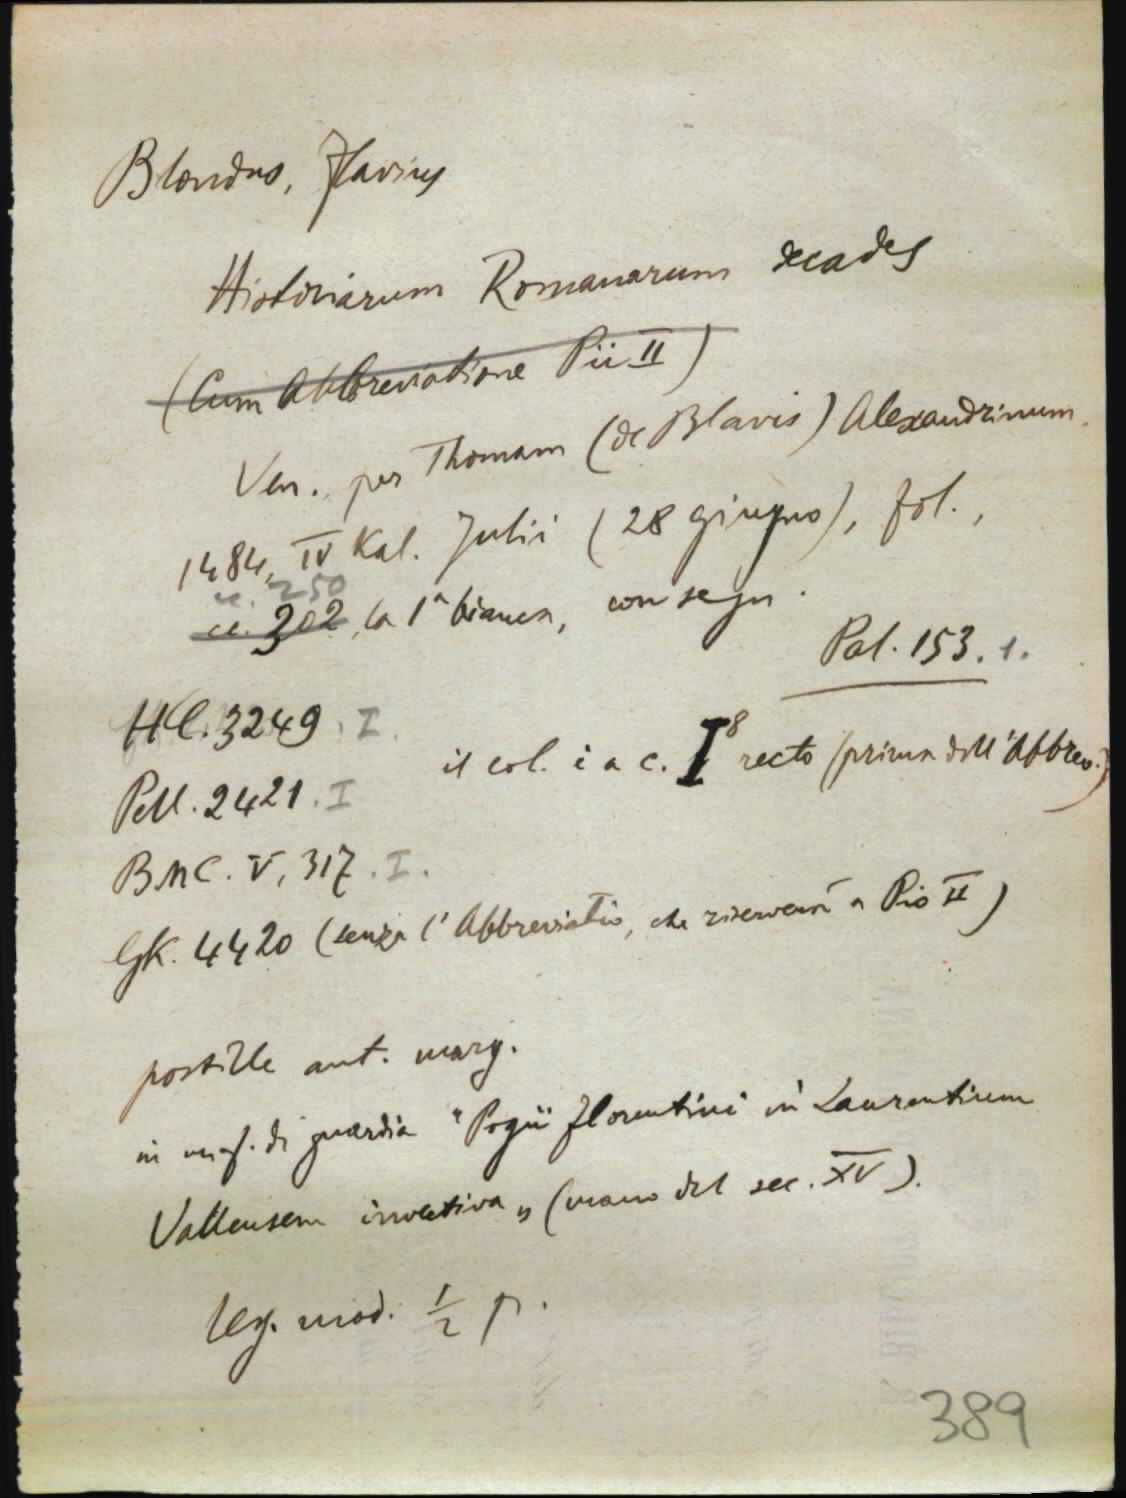 Blondus, Flavius
Historiarum Romanarum decades
(Cum Abbreviatione Pii II)
Ven., per Thomam (de Blavis) Alexandrinum,
1484, IV Kal. Julii (28 giugno), fol.,
cc. 250
cc. 302, la 1ª bianca, con segn.
Pal. 153. 1.
HC. 3249. I.
il col. è a c. I8 recto (prima dell'Abbrev.)
Pell. 2421. I
BMC. V, 317. I.
GK. 4420 (senza l'Abbreviatio, che a Pio II)
postille ant. marg.
in di guardia "Pogii Florentini in Laurentium
Vallensem invectiva" (mano del sec. XV).
leg. mod. 1/2 p.
389